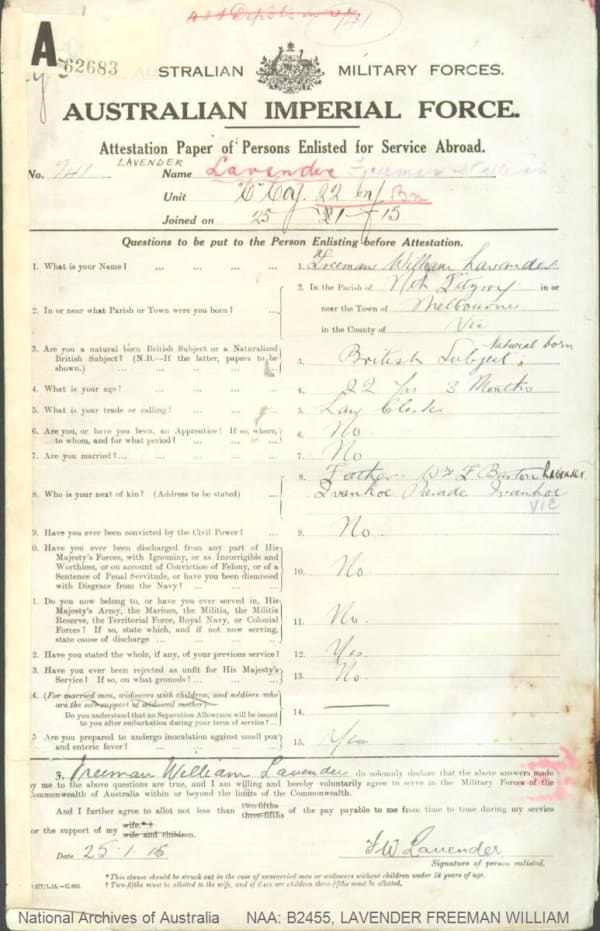 A
62683
STRALIAN MILITARY FORCES.
AUSTRALIAN IMPERIAL FORCE.
Attestation Paper of Persons Enlisted for Service Abroad.
LAVENDER
No. 741 Name Lavender Freeman William
Unit "C" Coy. 22 Bn
Joined on 25 - 1 - 15
Questions to be put to the Person Enlisting before Attestation.
1. What is your Name? ... ... ... ... 1. Freeman William Lavender
2. In or near what Parish or Town were you born? ... 2. In the Parish of Nth Fitzroy in or
near the Town of Melbourne
in the County of Vic
3. Are you a natural born British Subject or a Naturalized British Subject? (N.B.—If the latter, papers to be shown.) ... ... ... ... 3. British Subject Natural born
4. What is your age? ... ... ... ... 4. 22 yrs 3 Months
5. What is your trade or calling? ... ... ... 5. Law Clerk
6. Are you, or have you been, an Apprentice? If so, where, to whom, and for what period? ... ... ... 6. No.
7. Are you married?... ... ... ... ... 7. No
8. Who is your next of kin? (Address to be stated) ... 8. Father. W F Barton Lavender
Ivanhoe Parade Ivanhoe
VIC
9. Have you ever been convicted by the Civil Power? ... 9. No.
0. Have you ever been discharged from any part of His Majesty's Forces, with Ignominy, or as Incorrigible and Worthless, or on account of Conviction of Felony, or of a Sentence of Penal Servitude, or have you been dismissed with Disgrace from the Navy? ... ... ... 10. No.
1. Do you now belong to, or have you ever served in, His Majesty's Army, the Marines, the Militia, the Militia Reserve, the Territorial Force, Royal Navy, or Colonial Forces? If so, state which, and if not now serving, state cause of discharge ... ... ... ... 11. No.
2. Have you stated the whole, if any, of your previous service? 12. Yes
3. Have you ever been rejected as unfit for His Majesty's Service? If so, on what grounds? ... ... ... 13. No.
4. (For married men, widowers with children, and soldiers who are the sole support of widowed mother)
Do you understand that no Separation Allowance will be issued to you after embarkation during your term of service? ... 14.
5 Are you prepared to undergo inoculation against small pox and enteric fever? ... ... ... ... 15. Yes
I, Freeman William Lavender do solemnly declare that the above answers made
by me to the above questions are true, and I am willing and hereby voluntarily agree to serve in the Military Forces of the
Commonwealth of Australia within or beyond the limits of the Commonwealth.
And I further agree to allot not less than two-fifths three-fifths of the pay payable to me from time to time during my service
for the support of my wife.*† wife and children.
Date 25.1.15 F W Lavender
Signature of person enlisted.
*This clause should be struck out in the case of unmarried men or widowers without children under 18 years of age.
† Two-fifths must be allotted to the wife, and if there are children three-fifths must be allotted.
National Archives of Australia NAA: B2455, LAVENDER FREEMAN WILLIAM